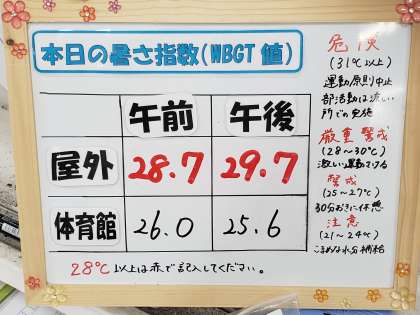 本日の暑さ指数(WBGT 値)
午前 午後
屋外 28.7 29.7
体育館 26.0 25.6
28℃以上は赤で記入してください。
危険
(31℃以上)
運動原則中止
部活動は涼しい
所での実施
厳重警戒
(28~30℃)
激しい運動さける
警戒
(25~27℃)
30分おきに休憩
注意
(21~24℃)
こまめな水分補給